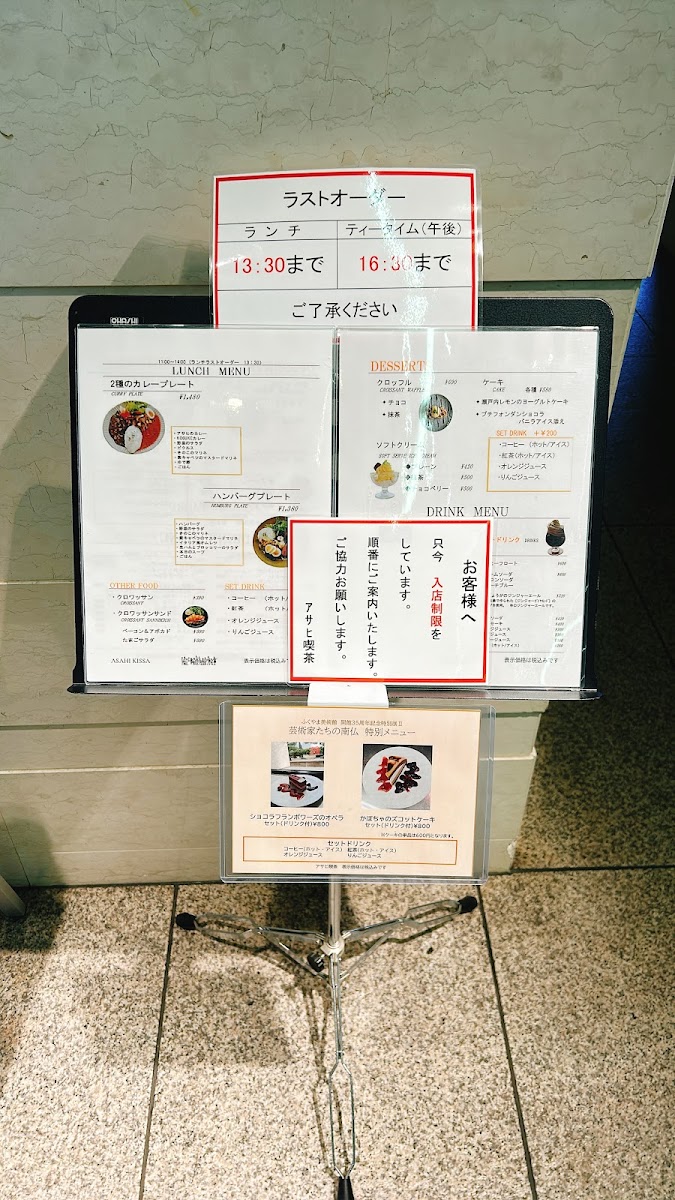 ラストオーダー
ランチ
ティータイム(午後)
13:30まで
16:30まで
ご了承ください
11:00～14:00 (ランチラストオーダー 13:30)
LUNCH MENU
2種のカレープレート
CURRY PLATE
¥1,480
ハンバーグプレート
HUMBURG PLATE
¥1,380
・ハンバーグ
・ごはん
OTHER FOOD
・クロワッサン
CROISSANT
・クロワッサンサンド
CROISSANT SANDWICH
ベーコン&アボカド
たまごサラダ
SET DRINK
・コーヒー (ホット/
・紅茶 (ホット/
・オレンジジュース
・りんごジュース
ASAHI KISSA
表示価格は税込みです
DESSERT
クロッフル
CROISSANT WAFFLE
✦チョコ
✦抹茶
ケーキ
CAKE
各種 ¥550
✦瀬戸内レモンのヨーグルトケーキ
✦プチフォンダンショコラ
バニラアイス添え
SET DRINK +¥200
・コーヒー (ホット/アイス)
・紅茶(ホット/アイス)
・オレンジジュース
・りんごジュース
ソフトクリーム
SOFT SERVE ICE CREAM
プレーン ¥450
抹茶 ¥500
チョコベリー ¥500
DRINK MENU
ドリンク
表示価格は税込みです
お客様へ
只今 入店制限を
しています。
順番にご案内いたします。
ご協力お願いします。
アサヒ喫茶
ふくやま美術館 開館35周年記念特別展Ⅱ
芸術家たちの南仏 特別メニュー
ショコラフランボワーズのオペラ
セット(ドリンク付)¥800
かぼちゃのズコットケーキ
セット(ドリンク付)¥800
※ケーキの単品は600円となります。
セットドリンク
コーヒー(ホット・アイス) 紅茶(ホット・アイス)
オレンジジュース りんごジュース
アサヒ喫茶 表示価格は税込みです